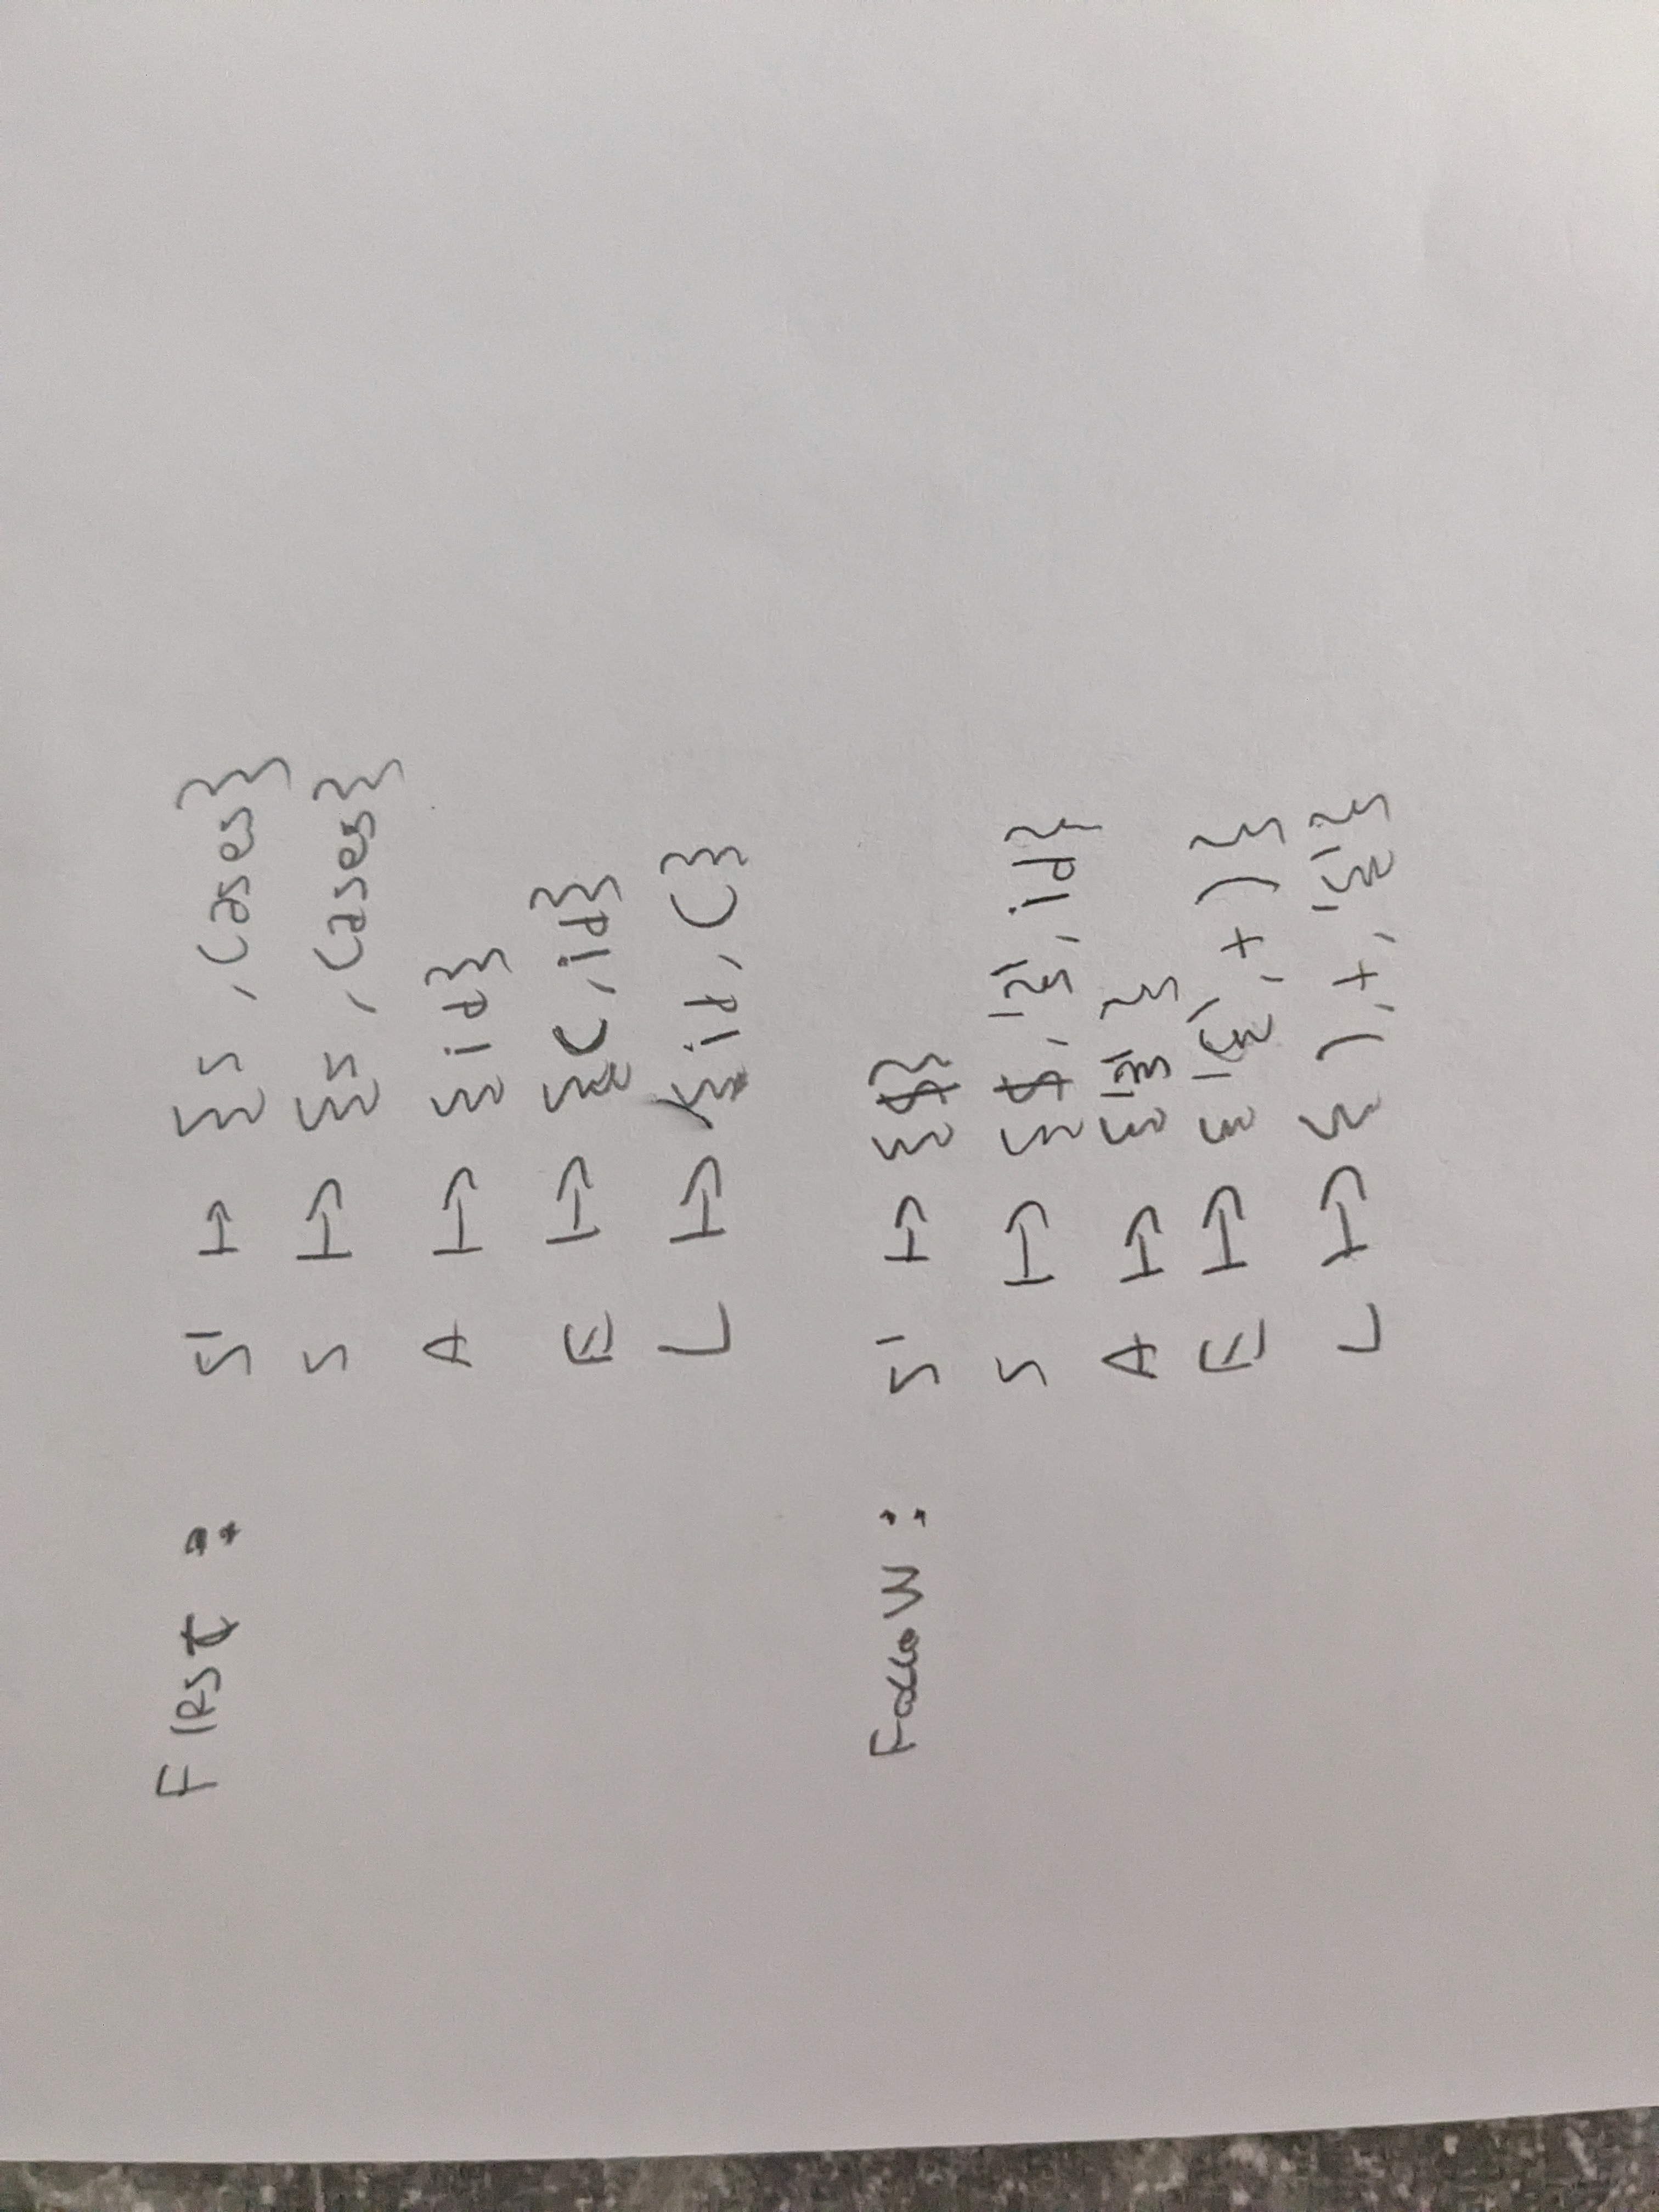 FIRST : S' ↦ {s , cases}
S ↦ {s , cases}
A ↦ {id}
E ↦ {(, id}
L ↦ {id, (}
Follow : S' ↦ {$}
S ↦ {$, '}', id}
A ↦ {'}'}
E ↦ {'{', +, )}
L ↦ {), +, '{'}